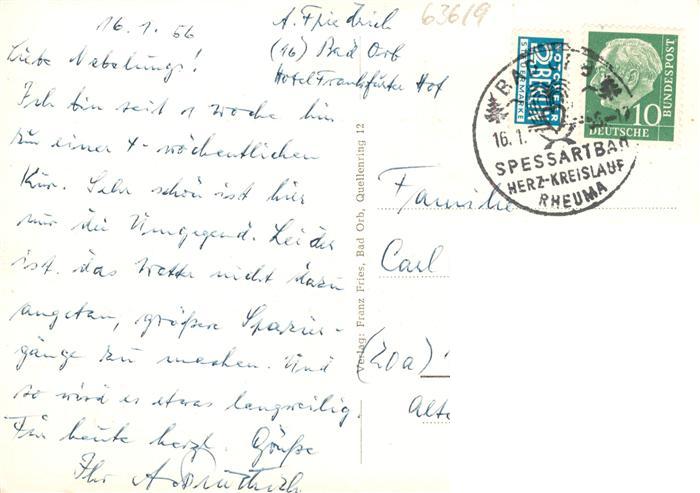 16.1.56
Liebe Nebelungs!
Ich bin seit 1 Woche hier
zu einer 4-wöchentlichen
Kur. Sehr schön ist hier
nur die Umgegend. Leider
ist das Wetter nicht dazu
angetan, größere Spazier-
gänge zu machen. Und
so wird es etwas langweilig.
Für heute herzl. Grüße
Ihr A. Friedrich
A. Friedrich
(16) Bad Orb
Hotel Frankfurter Hof
63619
NOTOPFER
2 BERLIN
STEUERMARKE
DEUTSCHE
BUNDESPOST
10
BAD
16.1.
SPESSARTBAD
HERZ-KREISLAUF
RHEUMA
Verlag: Franz Fries, Bad Orb, Quellenring 12
Familie
Carl
(20a)
Alte